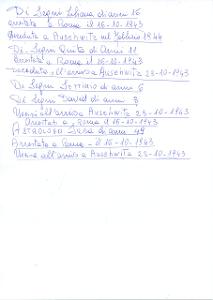 Di Segni Liliana di anni 16
arrestata a Roma il 16-10-1943
deceduta a Auschwitz nel febbraio 1944
Di Segni Giuditta di Anni 11
arrestata a Roma il 16-10-1943
uccisa all'arrivo a Auschwitz 23-10-1943
Di Segni di anni 6
Di Segni David di anni 8
Uccisi all'arrivo a Auschwitz 23-10-1943
Arrestati a Roma il 16-10-1943
di anni 49
Arrestata a Roma il 16-10-1943
Uccisa all'arrivo a Auschwitz 23-10-1943